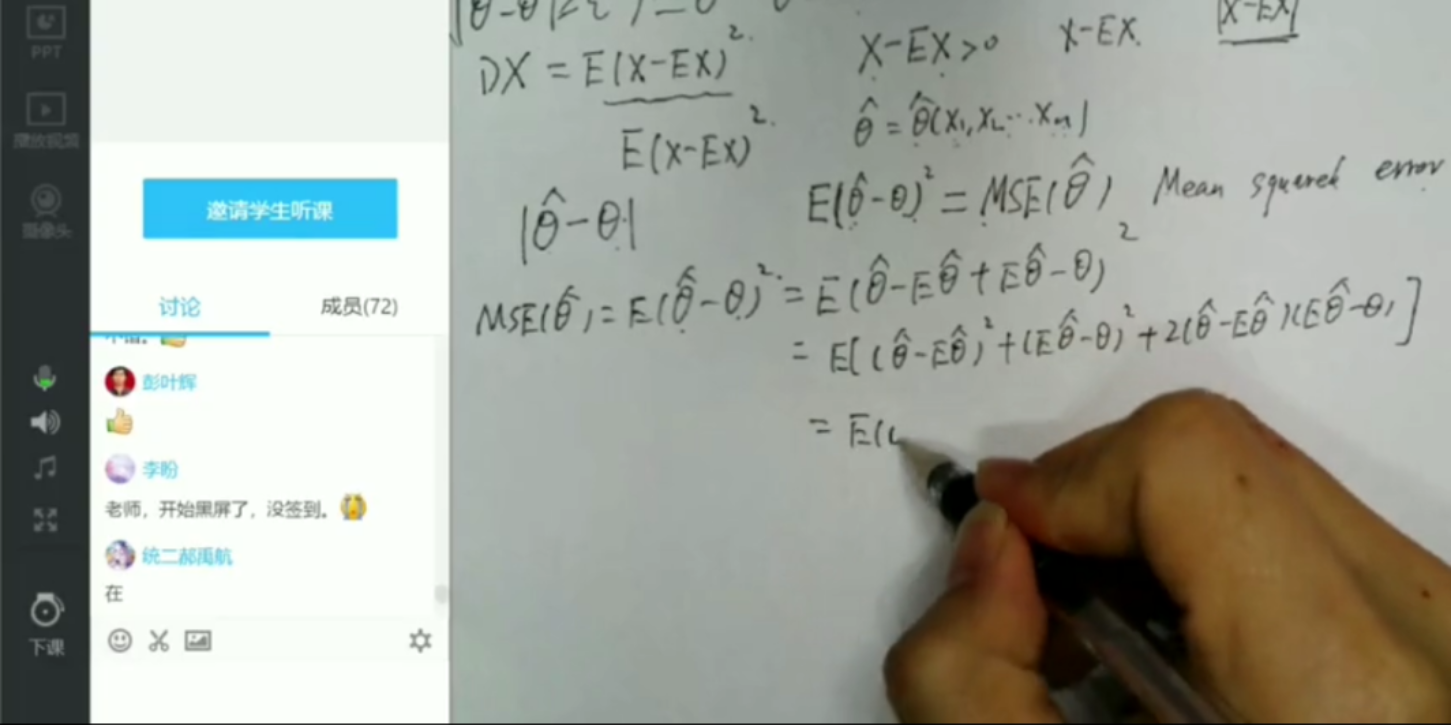 PPT
播放视频
摄像头
下课
邀请学生听课
讨论 成员(72)
彭叶辉
李盼
老师，开始黑屏了，没签到。
统二郝禹航
在
DX = E(X-EX)².
X-EX>0 X-EX |X-EX|
E(X-EX)².
θ̂ = θ̂(X₁,X₂…Xₙ)
|θ̂-θ|
E(θ̂-θ)² = MSE(θ̂) Mean squared error
MSE(θ̂) = E(θ̂-θ)² = E(θ̂-Eθ̂+Eθ̂-θ)²
= E[(θ̂-Eθ̂)²+(Eθ̂-θ)²+2(θ̂-Eθ̂)(Eθ̂-θ)]
= E((